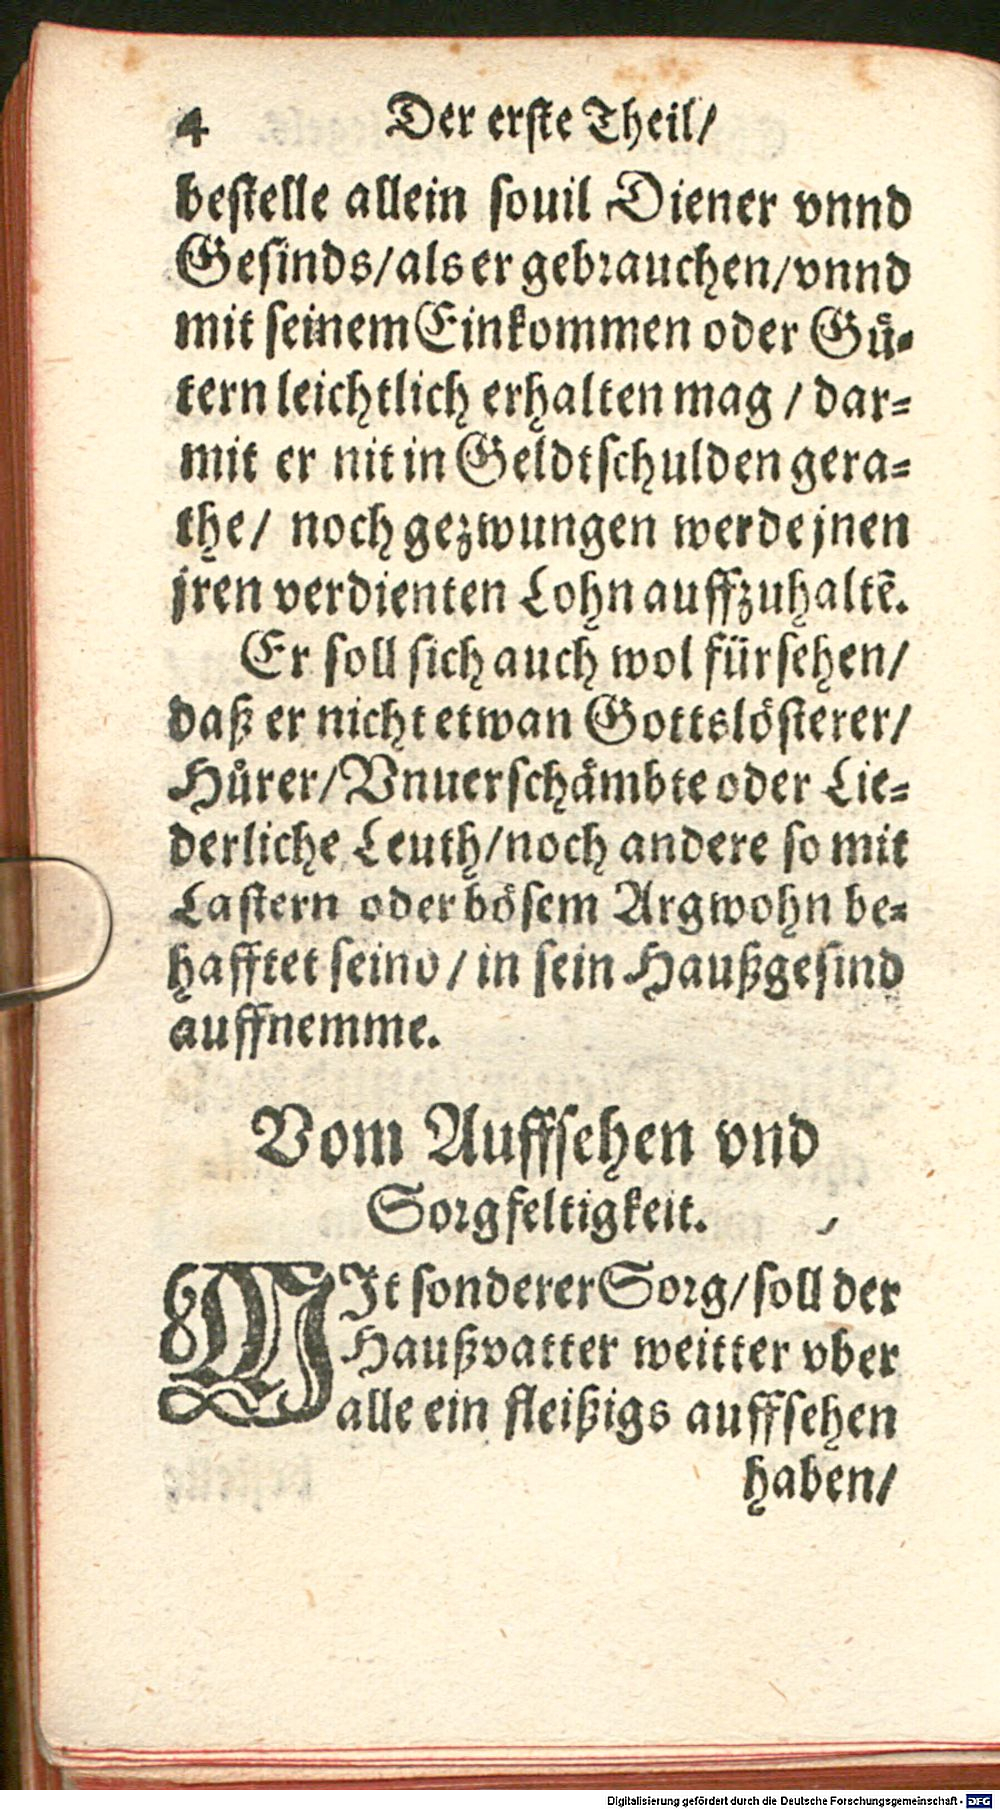 4 Der erste Theil/
bestelle allein souil Diener vnnd
Gesinds/als er gebrauchen/vnnd
mit seinem Einkommen oder Guͤ-
tern leichtlich erhalten mag / dar-
mit er nit in Geldtschulden gera-
the/ noch gezwungen werde jnen
jren verdienten Lohn auffzuhaltē.
Er soll sich auch wol fürsehen/
daß er nicht etwan Gottslösterer/
Huͤrer/Vnuerschaͤmbte oder Lie-
derliche Leuth/noch andere so mit
Lastern oder bösem Argwohn be-
hafftet seind / in sein Haußgesind
auffnemme.
Vom Auffsehen vnd
Sorgfeltigkeit.
MIt sonderer Sorg/soll der
Haußvatter weitter vber
alle ein fleißigs auffsehen
haben/
Digitalisierung gefördert durch die Deutsche Forschungsgemeinschaft - DFG